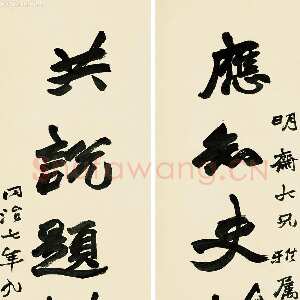 明齋大兄雅屬
應知史
共說題
同治七年九